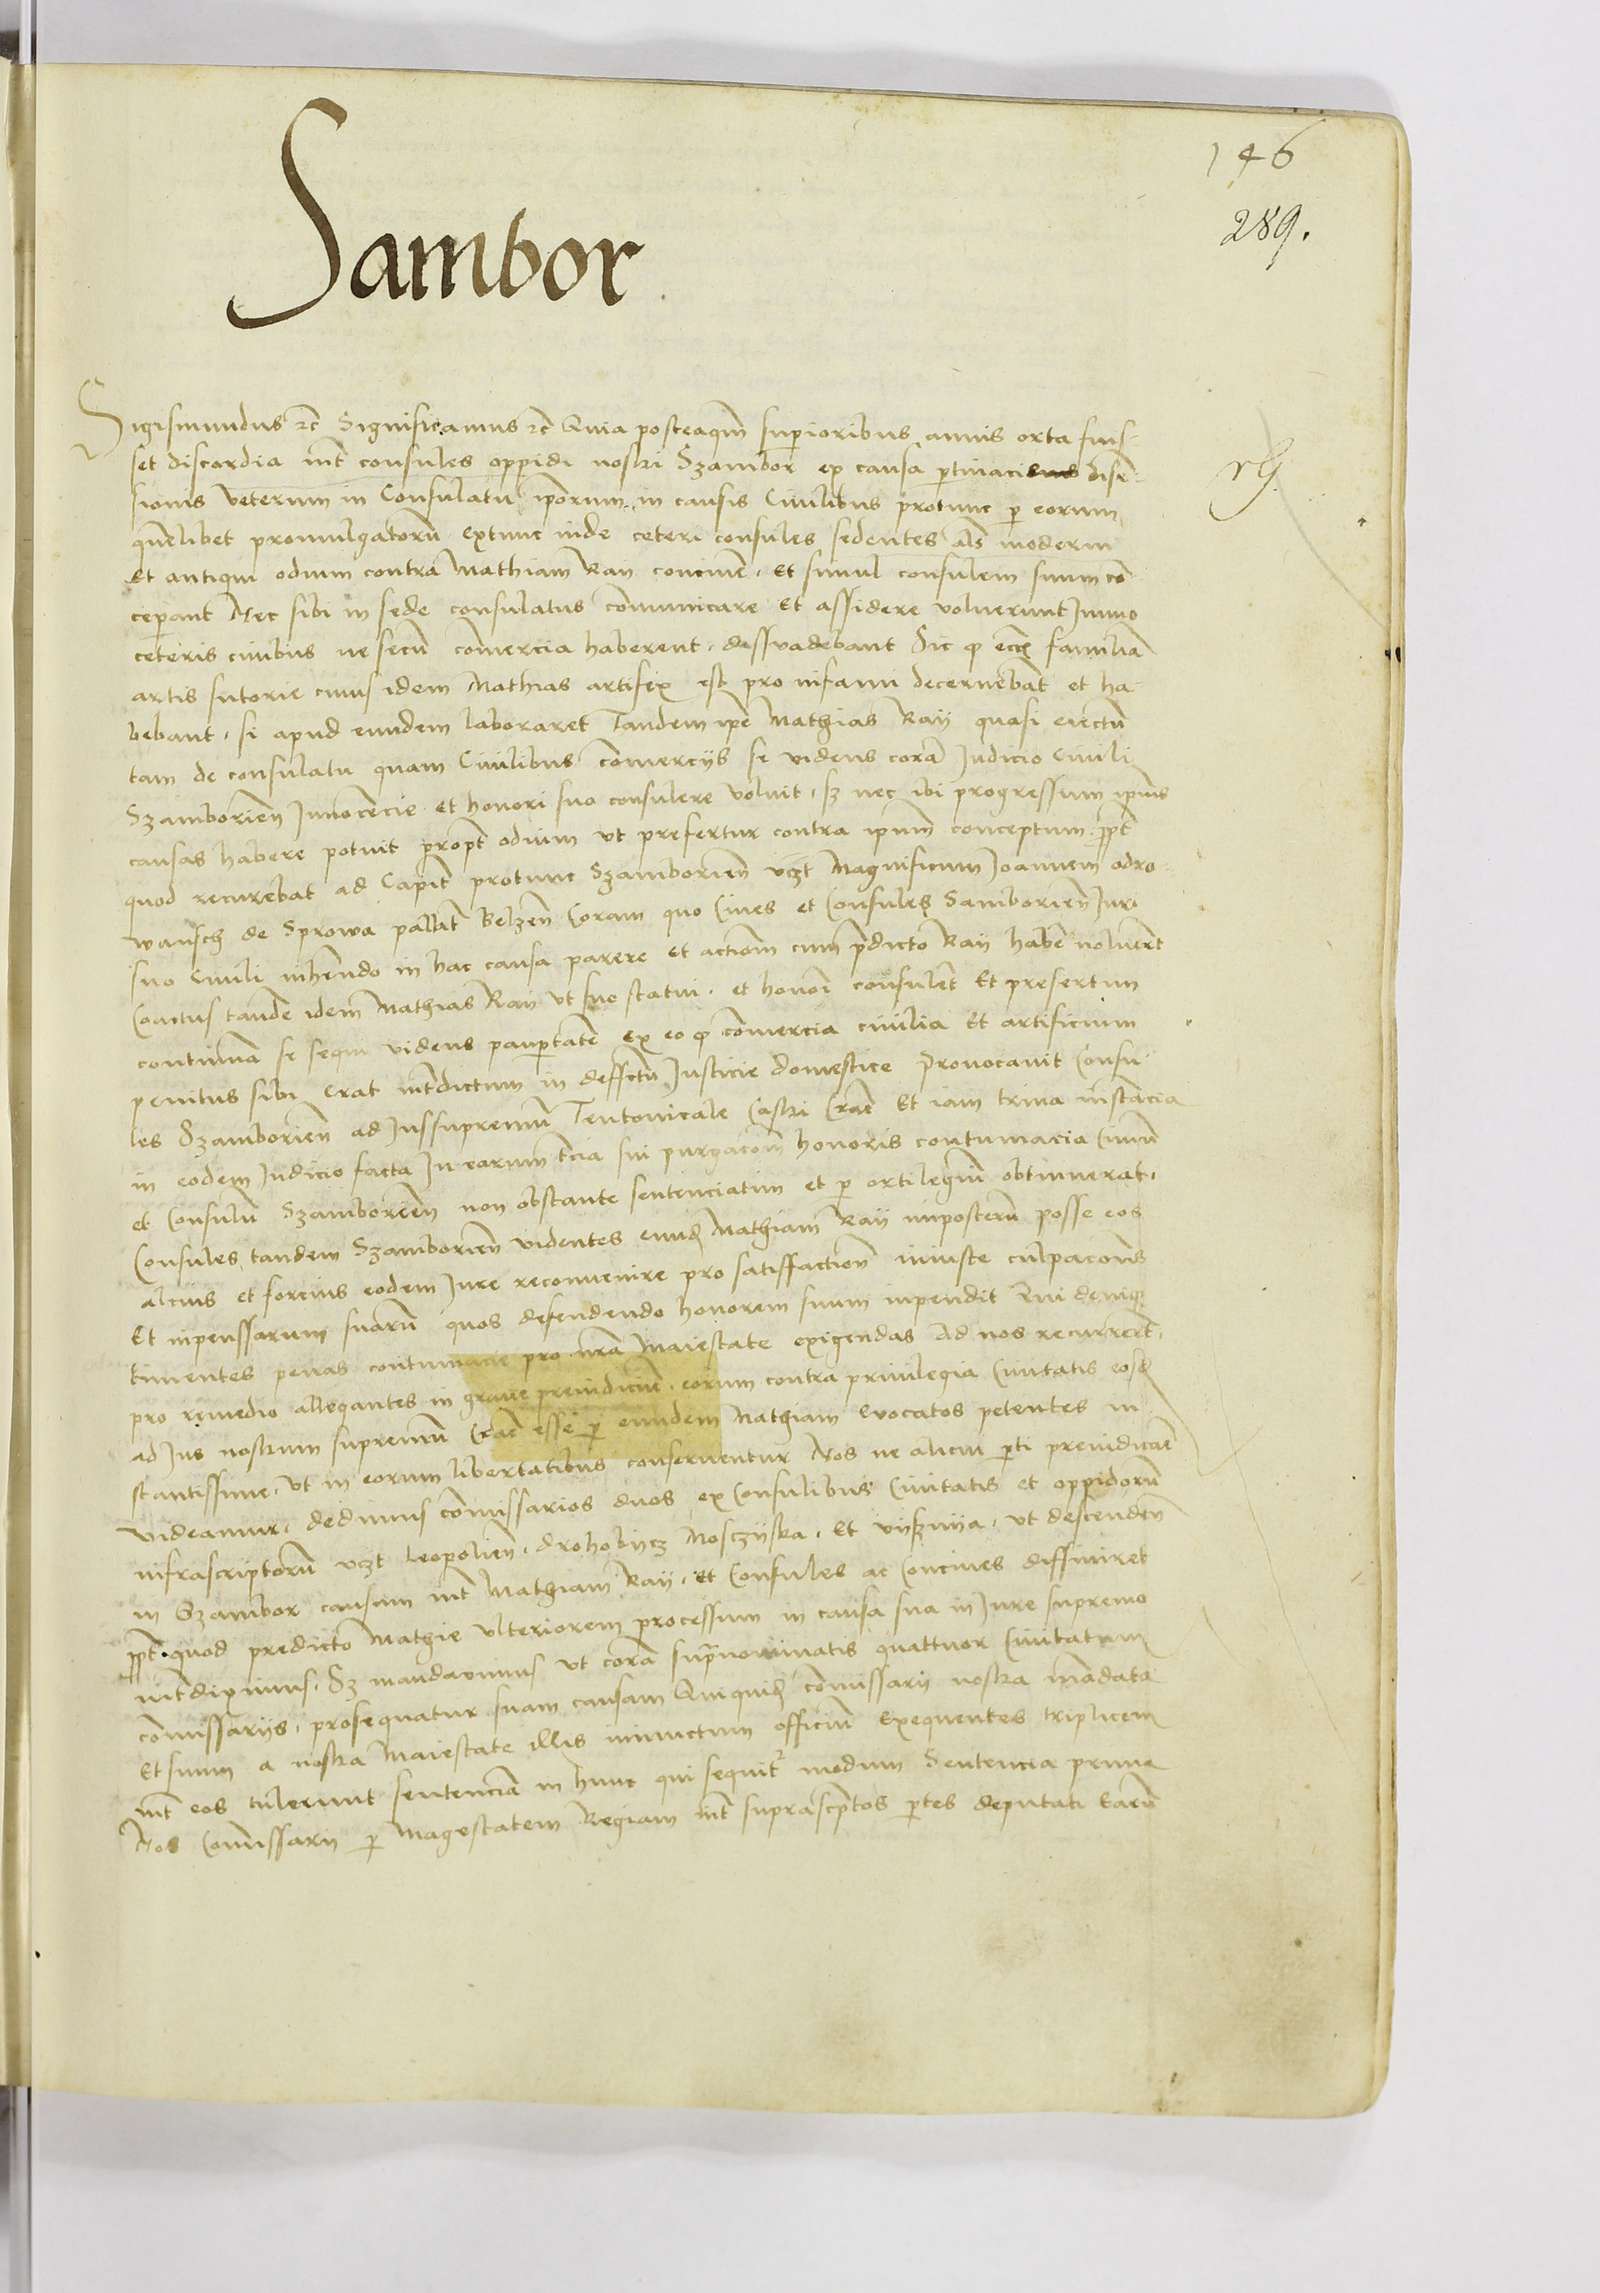 146
289.
Sambor
Sigismundus etc Significamus etc Quia posteaqm superioribus annis orta fuis-
set discordia int consules oppidi nostri Szambor ex causa disen-
sionis veterum in Consulatu iporum in causis Civilibus protunc p eorum
rG
quelibet promulgatoru extunc inde ceteri consules sedentes als moderni
Et antiqui odium contra Mathiam Ray concive Et simul consulem suum con
ceperant Nec sibi in sede consulatus comunicare Et assidere voluerunt Immo
ceteris civibus ne secu comercia haberent dessvadebant Sic familia
artis sutorie cuius idem Mathias artifex est pro infami decernebat et ha
bebant si apud eundem laboraret Tandem ipe Mathias Ray quasi eiectu
tam de consulatu quam Civilibus comercijs se videns cora Judicio Civili
Szamborien Innocencie et honori suo consulere voluit sz nec ibi progressum ipius
causas habere potuit propt odium ut prefertur contra ipum conceptum ppt
quod recurebat ad Capit protunc Szamborien vczt Magnificum Joannem odro-
wansch de Sprowa pallat Belzen Coram quo Cives et Consules Samborien Juri
suo Civili inherendo in hac causa parere et actiom cum pdicto Ray habe noluert
Coactus tande idem Mathias Ray ut suo statui et honori consulet Et presertim
continua se sequi videns paupertate Ex eo q comercia civilia Et artificium
penitus sibi erat intdictum in deffectu Justicie domestice Provocavit Consu-
les Szamborien ad Jussupremu Teutonicale Castri Crac Et iam trina instacia
in eodem Judicio facta sui purgacom honoris contumacia Civiu
et Consulu Szamborien non obstante sentenciatim et p ortilegiu obtinuerat
Consules tandem Szamborien videntes eund Mathiam Ray imposteru posse eos
alcius et forcius eodem Jure reconvenire pro satisfactione iniuste culpacois
Et inpenssarum suaru quos defendendo honorem suum inpendit Qui deniq
timentes penas contumacie pro nra Maiestate exigendas Ad nos recurrert
pro remedio allegantes in grave preiudiciu eorum contra privilegia Civitatis eosd
ad Jus nostrum supremu Crac esse p eundem Mathiam Evocatos petentes in-
stantissime ut in eorum libertatibus conserventur Nos ne alicui pti preiudicare
videamur dedimus comissarios duos ex Consulibus Civitatis et oppidoru
infrascriptoru vczt leopolien drohobycz Mosczijska Et vijsznija ut descenden
in Szambor causam int Mathiam Ray Et Consules ac Concives diffiniret
ppt quod predicto Mathie ulteriorem processum in causa sua in Jure supremo
intdiximus Sz mandavimus ut cora supranominatis quattuor Civitatum
comissarijs prosequatur suam causam Quiquid comissarij nostra mandata
Et suum a nostra Maiestate illis iniunctum officiu exequentes triplicem
int eos tulerunt sentencia in hunc qui sequitr modum Sentencia prima
Nos Comissarij p Magestatem Regiam int suprascptos ptes deputati Earu